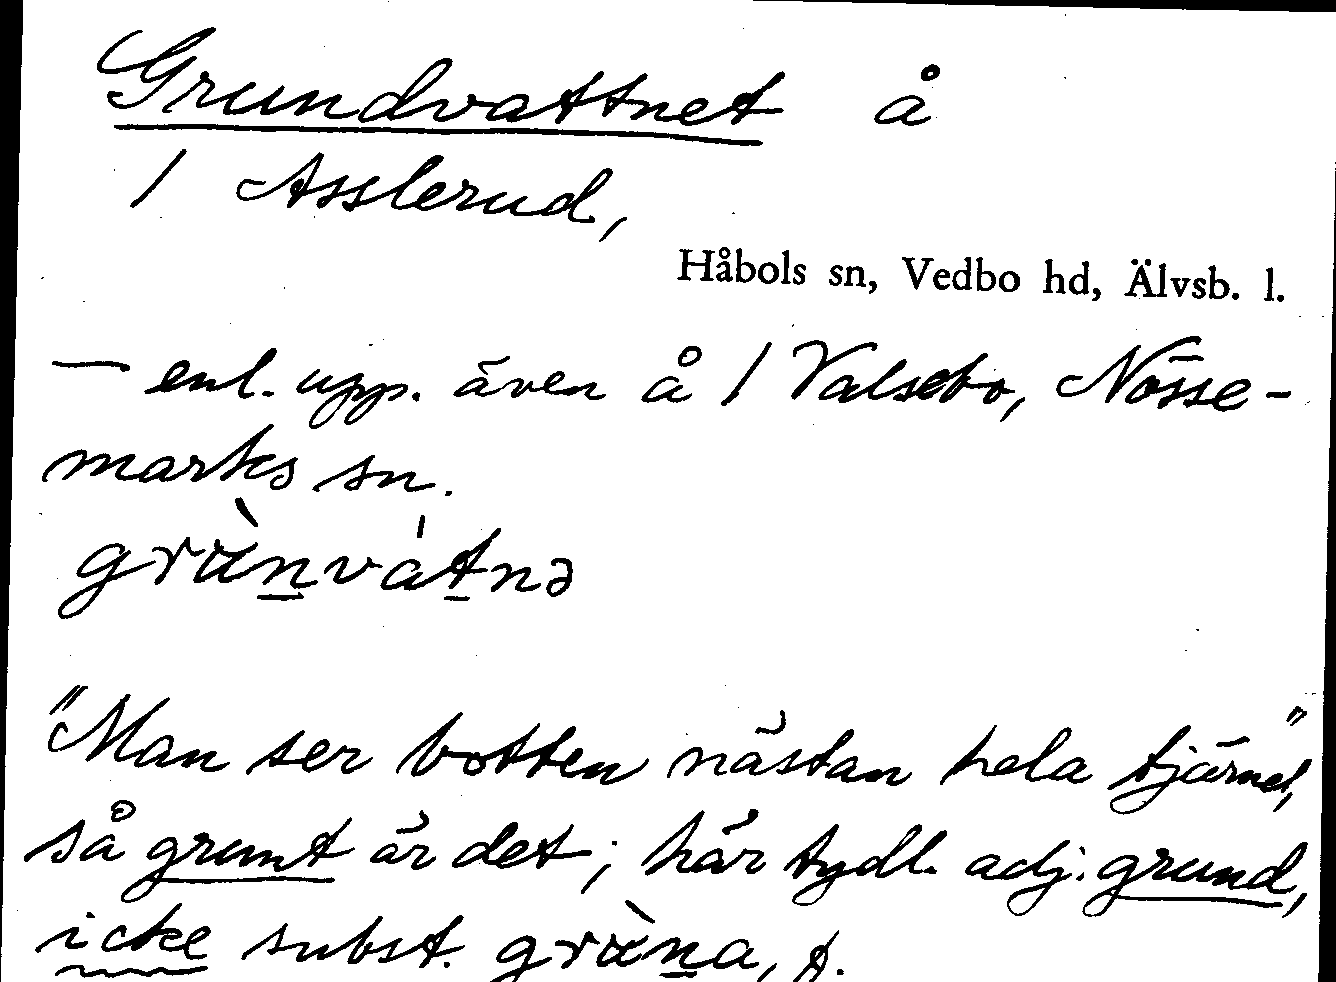 Grundvattnet å
/ Asslerud,
Håbols sn, Vedbo hd, Älvsb. l.
— enl. upp. även å / Valsebo, Nösse-
marks sn.
grùn̲vátnə
"Man ser botten nästan hela tjärnet,"
så grunt är det; här tydl. adj. grund,
icke subst. grùn̲a, f.